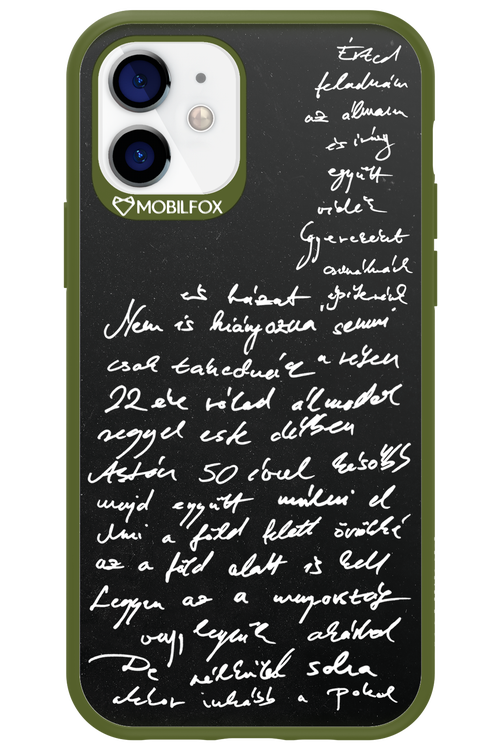 MOBILFOX
Érted
feladnám
az álmom
és így
együtt
vidék
Gyerekeket
csinálnánk
és házat építenénk
Nem is hiányozna semmi
csak takednék a réten
22 éve rólad álmodok
reggel este délben
Aztán 50 évvel később
majd együtt múlni el
Ami a föld felett örökké
az a föld alatt is kell
Legyen az a mennyország
vagy legyünk akárhol
De nélküled soha
akkor inkább a pokol